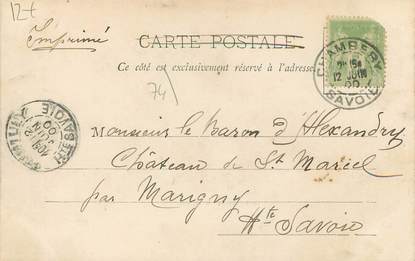 12€
Imprimé
CARTE POSTALE
Ce côté est exclusivement réservé à l'adresse
74
CHAMBERY
12 JUIN
00
SAVOIE
Monsieur le Baron d'Alexandry
Château de St Marcel
par Marigny
Hte Savoie
JUIN
00
HTE SAVOIE